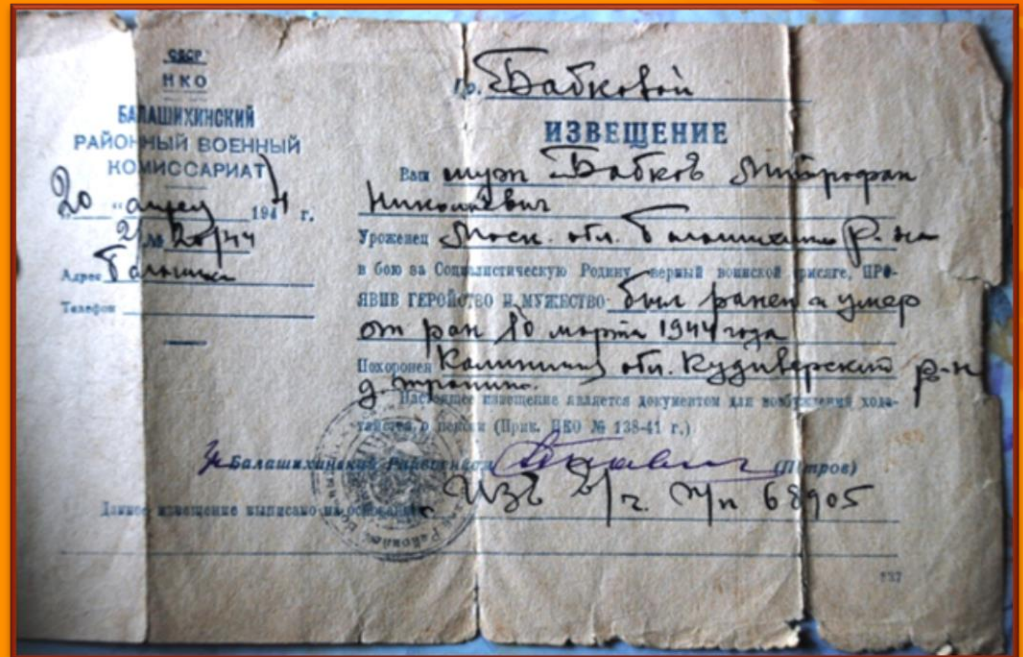 СССР
НКО
БАЛАШИХИНСКИЙ
РАЙОННЫЙ ВОЕННЫЙ
КОМИССАРИАТ
20 " апрел 1944 г.
№ 2/20/44
Адрес
Телефон
Гр. Бабковой
ИЗВЕЩЕНИЕ
Ваш муж Бабков Митрофан
Николаевич
Уроженец Моск. обл. р-на
в бою за Социалистическую Родину, верный воинской присяге, ПРО-
ЯВИВ ГЕРОЙСТВО И МУЖЕСТВО был ранен и умер
от ран 10 марта 1944 года
Похоронен обл. Кудиверский р-н
д. Тропино.
Настоящее извещение является документом для возбуждения хода-
тайства о пенсии (Прик. НКО № 138-41 г.)
Балашихинский Райвоенком (Петров)
Изв. в/ч. п/п 68905
Данное извещение выписано на основании